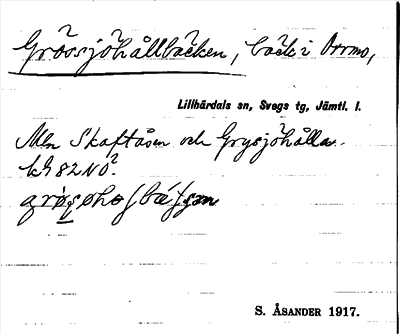 Gröösjöhållbäcken, bäck i Orrmo,
Lillhärdals sn, Svegs tg, Jämtl. l.
Mln Skaftåsen och Grysjöhålla.
kh 82 NO?
S. ÅSANDER 1917.